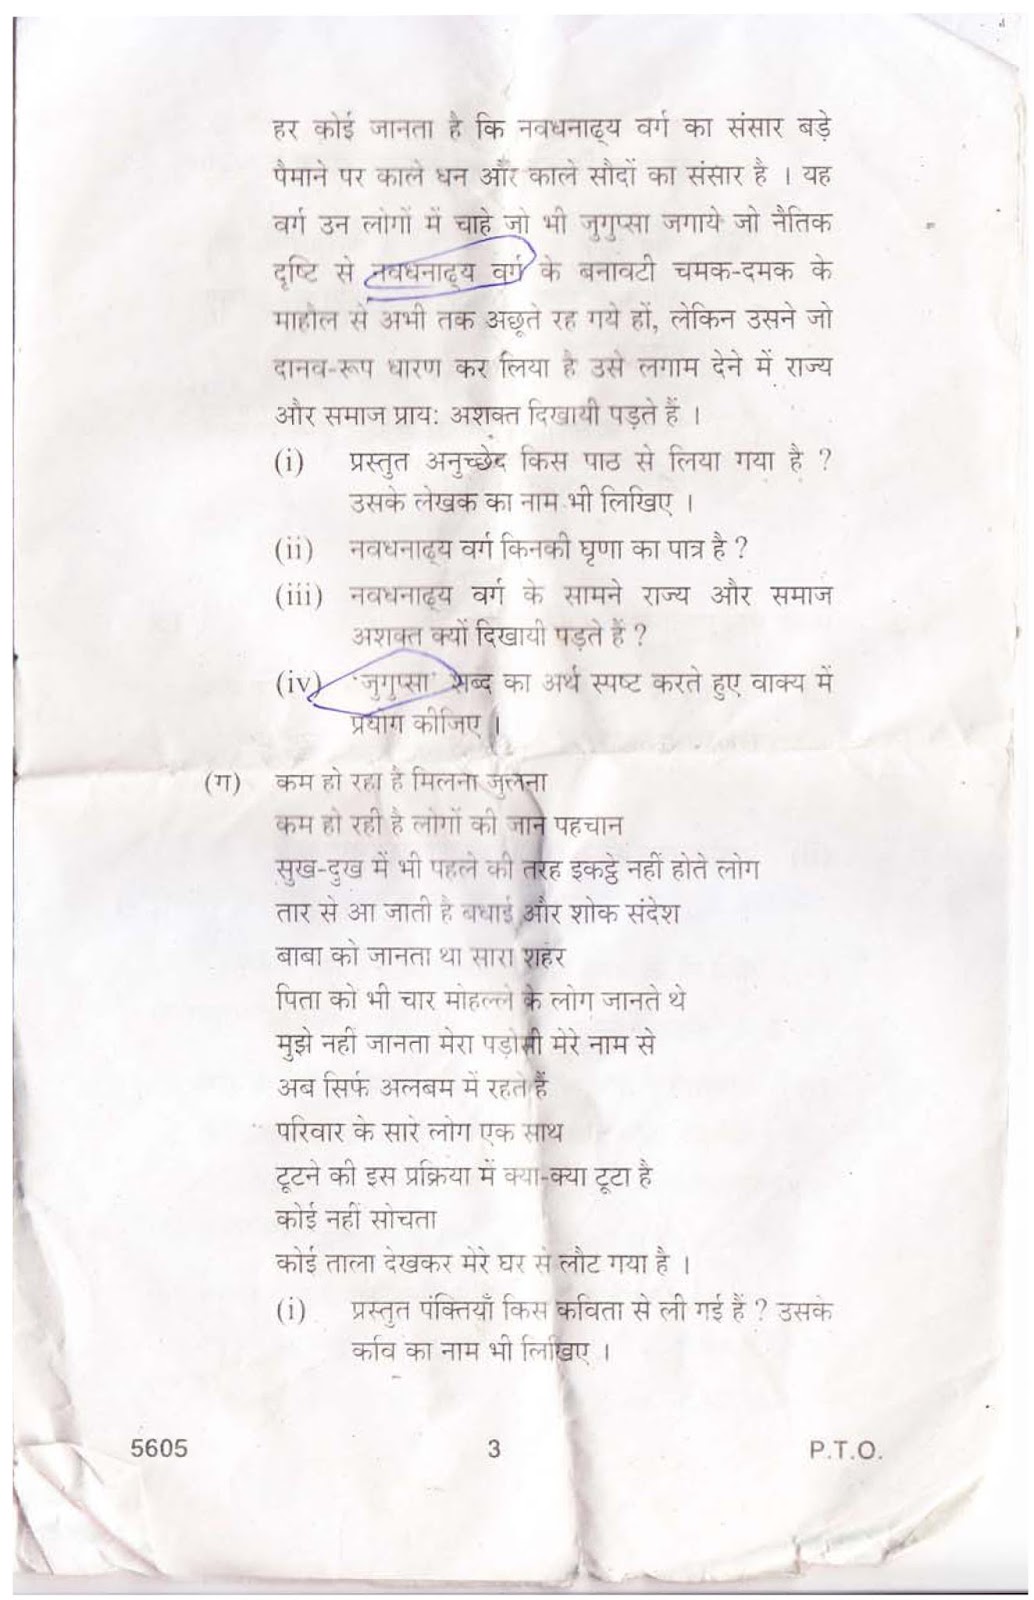 हर कोई जानता है कि नवधनाढ्य वर्ग का संसार बड़े
पैमाने पर काले धन और काले सौदों का संसार है । यह
वर्ग उन लोगों में चाहे जो भी जुगुप्सा जगाये जो नैतिक
दृष्टि से नवधनाढ्य वर्ग के बनावटी चमक-दमक के
माहौल से अभी तक अछूते रह गये हों, लेकिन उसने जो
दानव-रूप धारण कर लिया है उसे लगाम देने में राज्य
और समाज प्राय: अशक्त दिखायी पड़ते हैं ।
(i) प्रस्तुत अनुच्छेद किस पाठ से लिया गया है ?
उसके लेखक का नाम भी लिखिए ।
(ii) नवधनाढ्य वर्ग किनकी घृणा का पात्र है ?
(iii) नवधनाढ्य वर्ग के सामने राज्य और समाज
अशक्त क्यों दिखायी पड़ते हैं ?
(iv) 'जुगुप्सा' शब्द का अर्थ स्पष्ट करते हुए वाक्य में
प्रयोग कीजिए ।
(ग) कम हो रहा है मिलना जुलना
कम हो रही है लोगों की जान पहचान
सुख-दुख में भी पहले की तरह इकट्ठे नहीं होते लोग
तार से आ जाती है बधाई और शोक संदेश
बाबा को जानता था सारा शहर
पिता को भी चार मोहल्ले के लोग जानते थे
मुझे नहीं जानता मेरा पड़ोसी मेरे नाम से
अब सिर्फ अलबम में रहते हैं
परिवार के सारे लोग एक साथ
टूटने की इस प्रक्रिया में क्या-क्या टूटा है
कोई नहीं सोचता
कोई ताला देखकर मेरे घर से लौट गया है ।
(i) प्रस्तुत पंक्तियाँ किस कविता से ली गई हैं ? उसके
कवि का नाम भी लिखिए ।
5605 3 P.T.O.